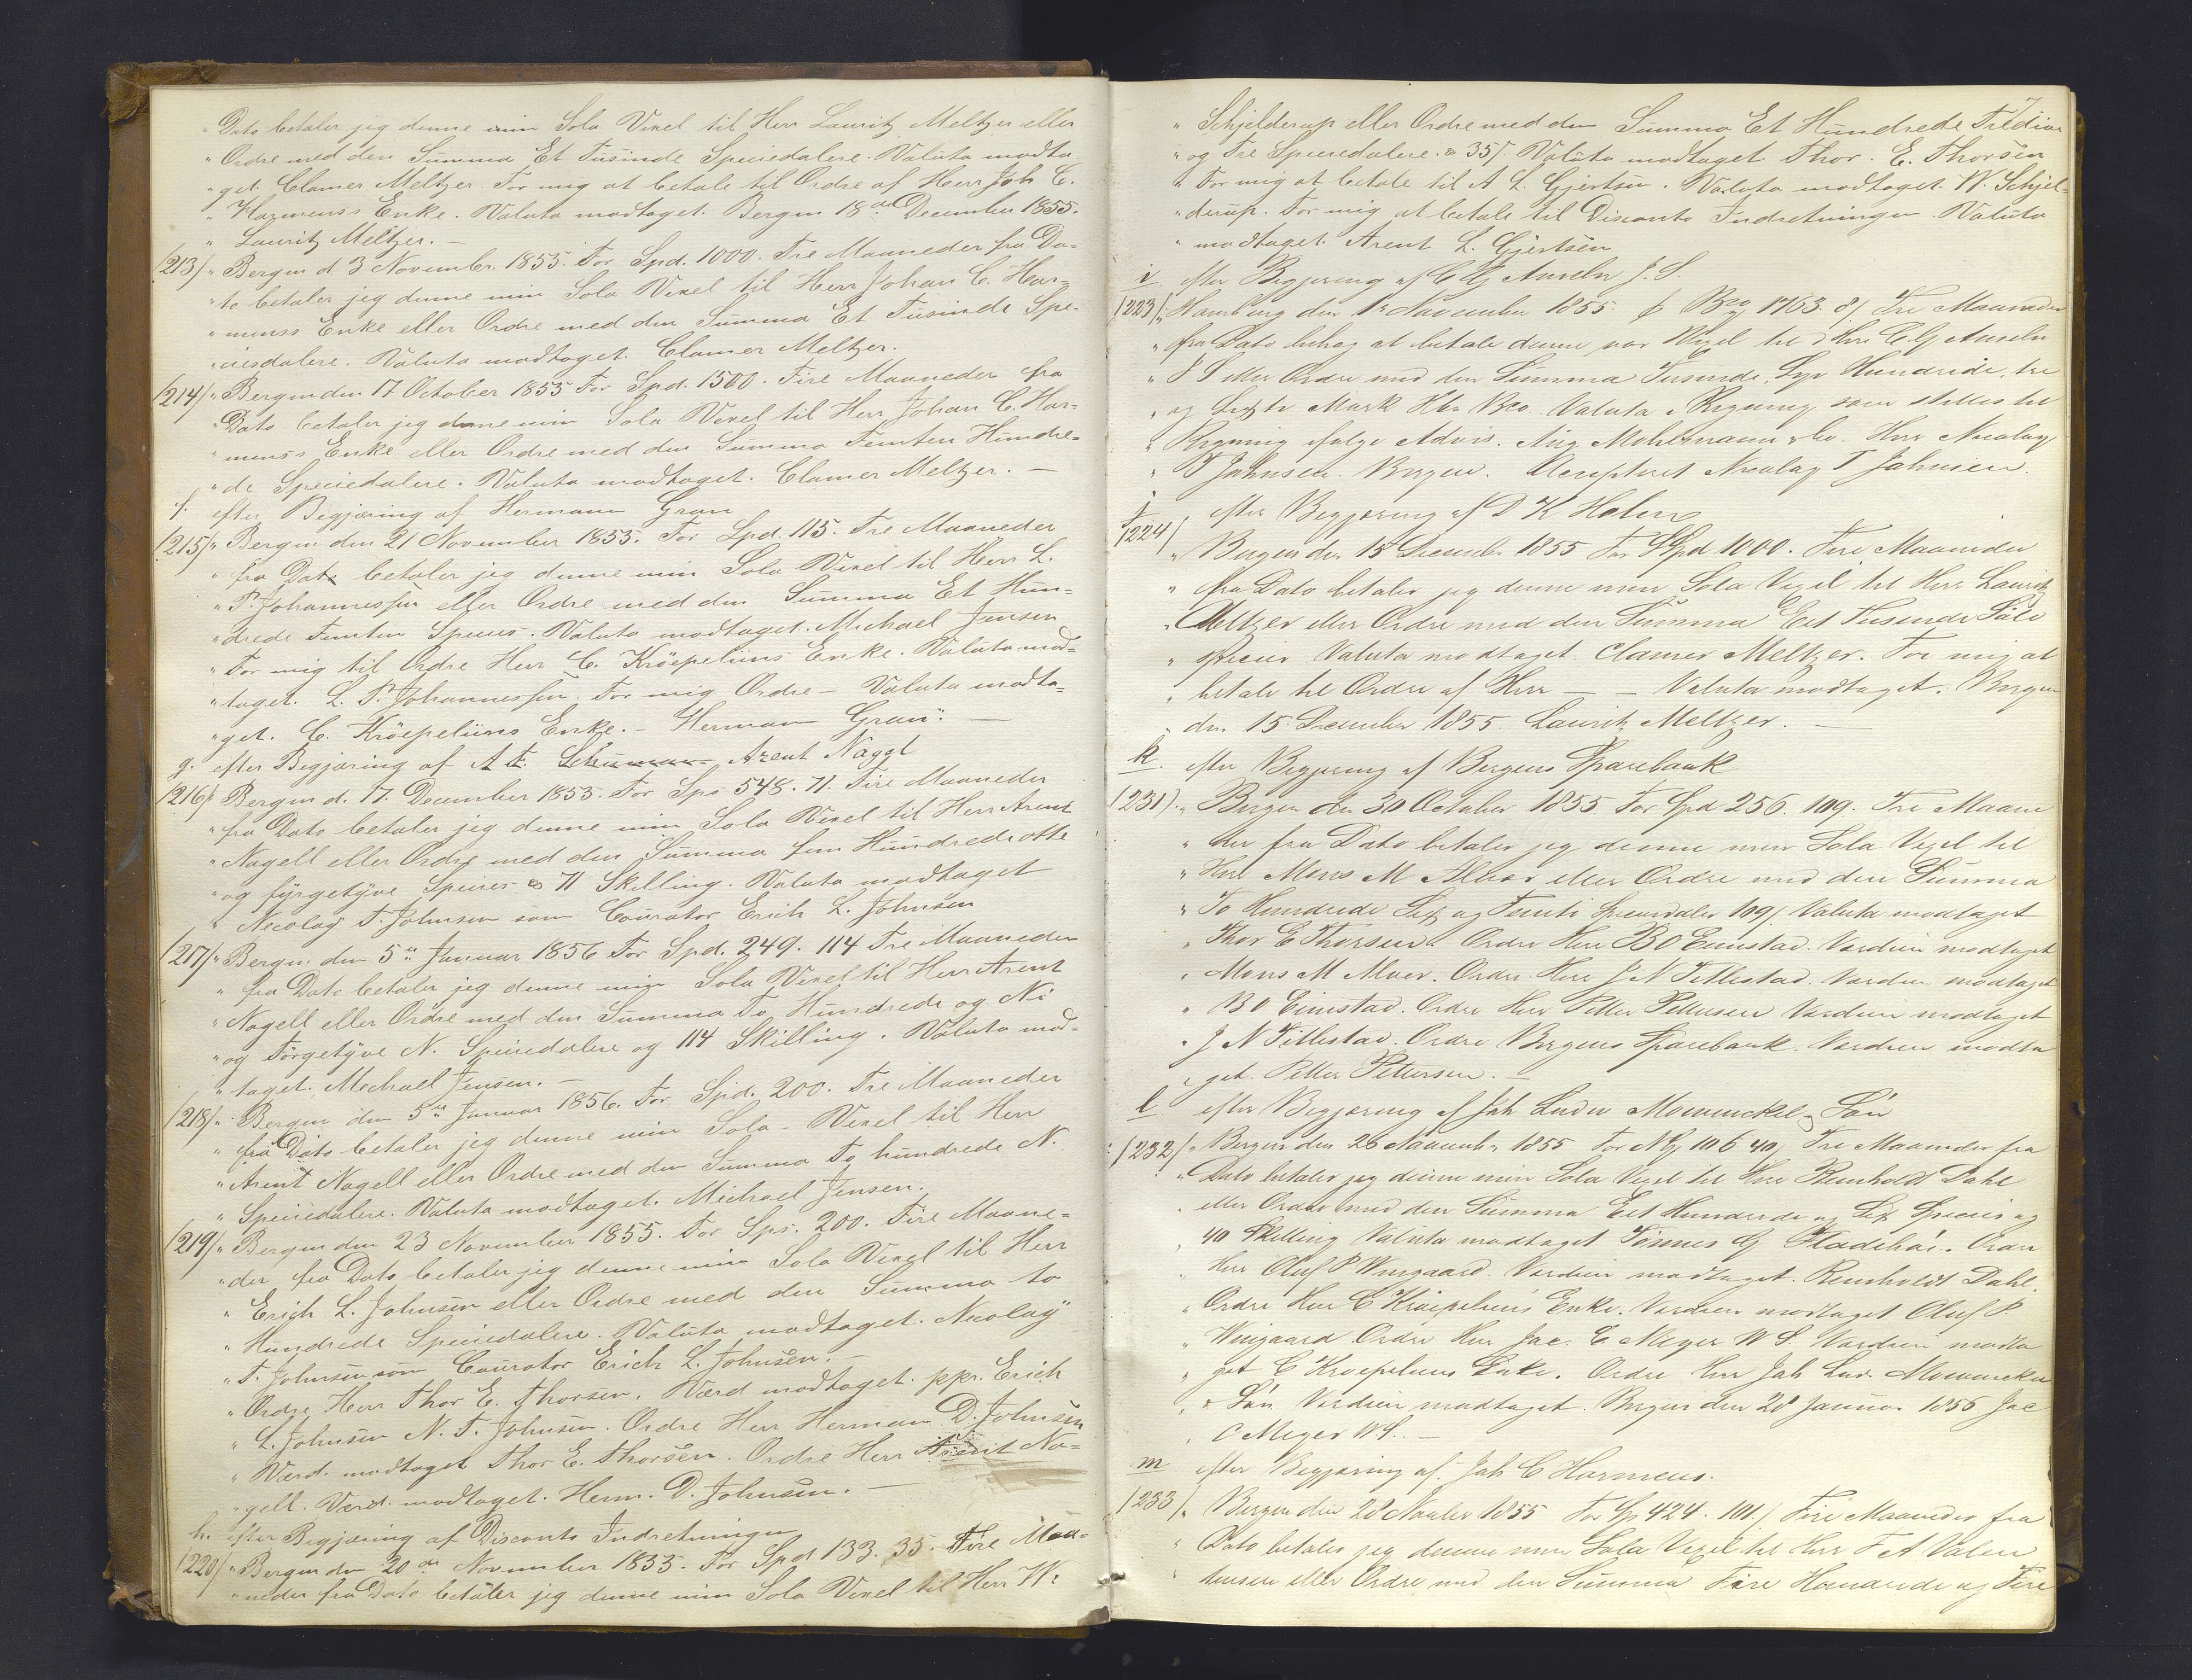 " Dato betaler jeg denne min Sola Vexel til Herr Lauritz Meltzer eller
" Ordre med den Summa Et Tusinde Speciedalere. Valuta modta
" get. Clamer Meltzer. For mig at betale til Ordre af Herr Joh C.
" Harmenss Enke. Valuta modtaget. Bergen 18de December 1855.
" Lauritz Meltzer. —
1213/ " Bergen d. 3 November. 1855. For Spd. 1000. Tre Maaneder fra Da-
" to betaler jeg denne min Sola Vexel til Herr Johan C. Har-
" menss Enke eller Ordre med den Summa Et Tusinde Spe-
" ciesdalere. Valuta modtaget. Clamer Meltzer.
1214/ " Bergen den 17 October 1855 For Spd. 1500. Fire Maaneder fra
" Dato betaler jeg denne min Sola Vexel til Herr Johan C. Har-
" menss Enke eller Ordre med den Summa Femten Hundre-
" de Speciedalere. Valuta modtaget. Clamer Meltzer. —
f. efter Begjæring af Hermann Gran
1215/ " Bergen den 21 November 1855. For Spd. 115. Tre Maaneder
" fra Dato betaler jeg denne min Sola Vexel til Herr L.
" P. Johannessen eller Ordre med den Summa Et Hun-
" drede Femten Species. Valuta modtaget. Michael Jensen
" For mig til Ordre Herr C. Kröepeliens Enke. Valuta mod-
" taget. L. P. Johannessen. For mig Ordre — Valuta modta-
" get. C. Kröepeliens Enke. — Herman Gran. —
g. efter Begjæring af A Arent Nagel
1216/ Bergen d. 17. December 1855. For Sps 548. 71. Fire Maaneder
" fra Dato betaler jeg denne min Sola Vexel til Herr Arent
" Nagell eller Ordre med den Summa fem Hundrede otte
" og fyrgetyve Species & 71 Skilling. Valuta modtaget
" Nicolay T. Johnsen som Courator Erich L. Johnsen
1217/ " Bergen den 5te Januar 1856 For Spd. 249. 114 Tre Maaneder
" fra Dato betaler jeg denne min Sola Vexel til Herr Arent
" Nagell eller Ordre med den Summa To Hundrede og Ni
" og Förgetyve N. Speciedalere og 114 Skilling. Valuta mod-
" taget. Michael Jensen. —
1218/ " Bergen den 5te Januar 1856. For Spd. 200. Tre Maaneder
" fra Dato betaler jeg denne min Sola - Vexel til Herr
" Arent Nagell eller Ordre med den Summa To hundrede N.
" Speciedalere. Valuta modtaget. Michael Jensen.
1219/ " Bergen den 23 November 1855. For Sps. 200. Fire Maane-
" der fra Dato betaler jeg denne min Sola Vexel til Herr
" Erich L. Johnsen eller Ordre med den Summa to
" Hundrede Speciedalere. Valuta modtaget. Nicolay
" T. Johnsen som Courator Erich L. Johnsen. —
" Ordre Herr Thor E. Thorsen. Værd modtaget. ppr. Erich
" L. Johnsen N. T. Johnsen. Ordre Herr Herman D. Johnsen
" Værd. modtaget Thor E. Thorsen. Ordre Herr Arent Na-
" gell. Værd. modtaget. Herm. D. Johnsen. —
h. efter Begjæring af Disconto Indretningen
1220/ " Bergen den 20de November 1855. For Spd 133. 35. Fire Maa-
" neder fra Dato betaler jeg denne min Sola Vexel til Herr W.
7
" Schjelderup eller Ordre med den Summa Et Hundrede Tredive
" og Tre Speciedalere. & 35/. Valuta modtaget. Thor. E. Thorsen
" For mig at betale til A L. Gjertsen. Valuta modtaget. W. Schjel-
" derup. For mig at betale til Disconto Indretningen. Valuta
" modtaget. Arent L. Gjertsen
i. efter Begjæring af J. S.
1223/ " Hamburg den 1te November 1855. Bco 1763. 8/ Tre Maaneder
" fra Dato behag at betale denne vor Vexel til Herr
" J S eller Ordre med den Summa Tusinde, Syv Hundrede, tre
" og Sexti Mark Hbr Bco. Valuta i Regning som stilles til
" Regning ifølge Advis. Aug Mohrmann & Co. Herr Nicolay
" T Johnsen. Bergen. Accepteret Nicolay T Johnsen.
j efter Begjæring af D K Holm
1224/ " Bergen den 15 December 1855 For Spd 1000. Fire Maaneder
" fra Dato betaler jeg denne min Sola Vexel til Herr Lauritz
" Meltzer eller Ordre med den Summa Eet Tusende Sölv
" species Valuta modtaget. Clamer Meltzer. For mig at
" betale til Ordre af Herr — — Valuta modtaget. Bergen
" den 15 December 1855. Lauritz Meltzer. —
k. efter Begjæring af Bergens Sparebank
1231). " Bergen den 30 October 1855 For Spd 256. 109. Tre Maane
" der fra Dato betaler jeg denne min Sola Vexel til
" Herr Mons M Alver eller Ordre med den Summa
" To Hundrede Sex og Femti Speciedaler 109/. Valuta modtaget
" Thor E Thorsen. Ordre Herr B O Eimstad. Værdien modtaget
" Mons M Alver. Ordre Herr J N Tillestad. Værdien modtaget
" B O Eimstad. Ordre Herr Petter Pettersen Værdien modtaget
" J N Tillestad. Ordre Bergens Sparebank. Værdien modta
" get. Petter Pettersen. —
l efter Begjæring af Joh Luder Mowinckel & Sön
1232/ " Bergen den 26 November 1855 For 106 40/ Tre Maaneder fra
" Dato betaler jeg denne min Sola Vexel til Herr Reinholdt Dahl
" eller Ordre med den Summa Eet Hundrede og Sex Species og
" 40 Skilling Valuta modtaget Tönnes G Fladeböe. Ordre
" Herr Oluf P Wingaard. Værdien modtaget. Reinholdt Dahl.
" Ordre Herr C Kröepeliens Enke. Værdien modtaget Oluf P
" Wingaard Ordre Herr Jac. C Meyer W S. Værdien modta
" get C Kroepeliens Enke. Ordre Herr Joh Lud. Mowinckel
" & Sön Værdien modtaget. Bergen den 28 Januar 1856 Jac
" C Meyer W S. —
m efter Begjæring af Joh C Harmens.
1233/ " Bergen den 28 Novbr 1855 For Sp 424. 101./ Fire Maaneder fra
" Dato betaler jeg denne min Sola Vexel til Herr F A Valen
" tinsen eller Ordre med den Summa Fire Hundrede og Fire